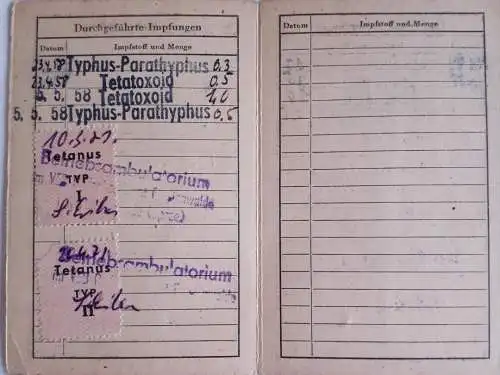 Durchgeführte Impfungen
Datum Impfstoff und Menge
23.4.58 Typhus-Parathyphus 0.3
23.4.58 Tetatoxoid 0.5
5. 5. 58 Tetatoxoid 1,0
5. 5. 58 Typhus-Parathyphus 0,5
Tetanus
Betriebsambulatorium
TYP
I
Tetanus
Betriebsambulatorium
TYP
II
Datum Impfstoff und Menge